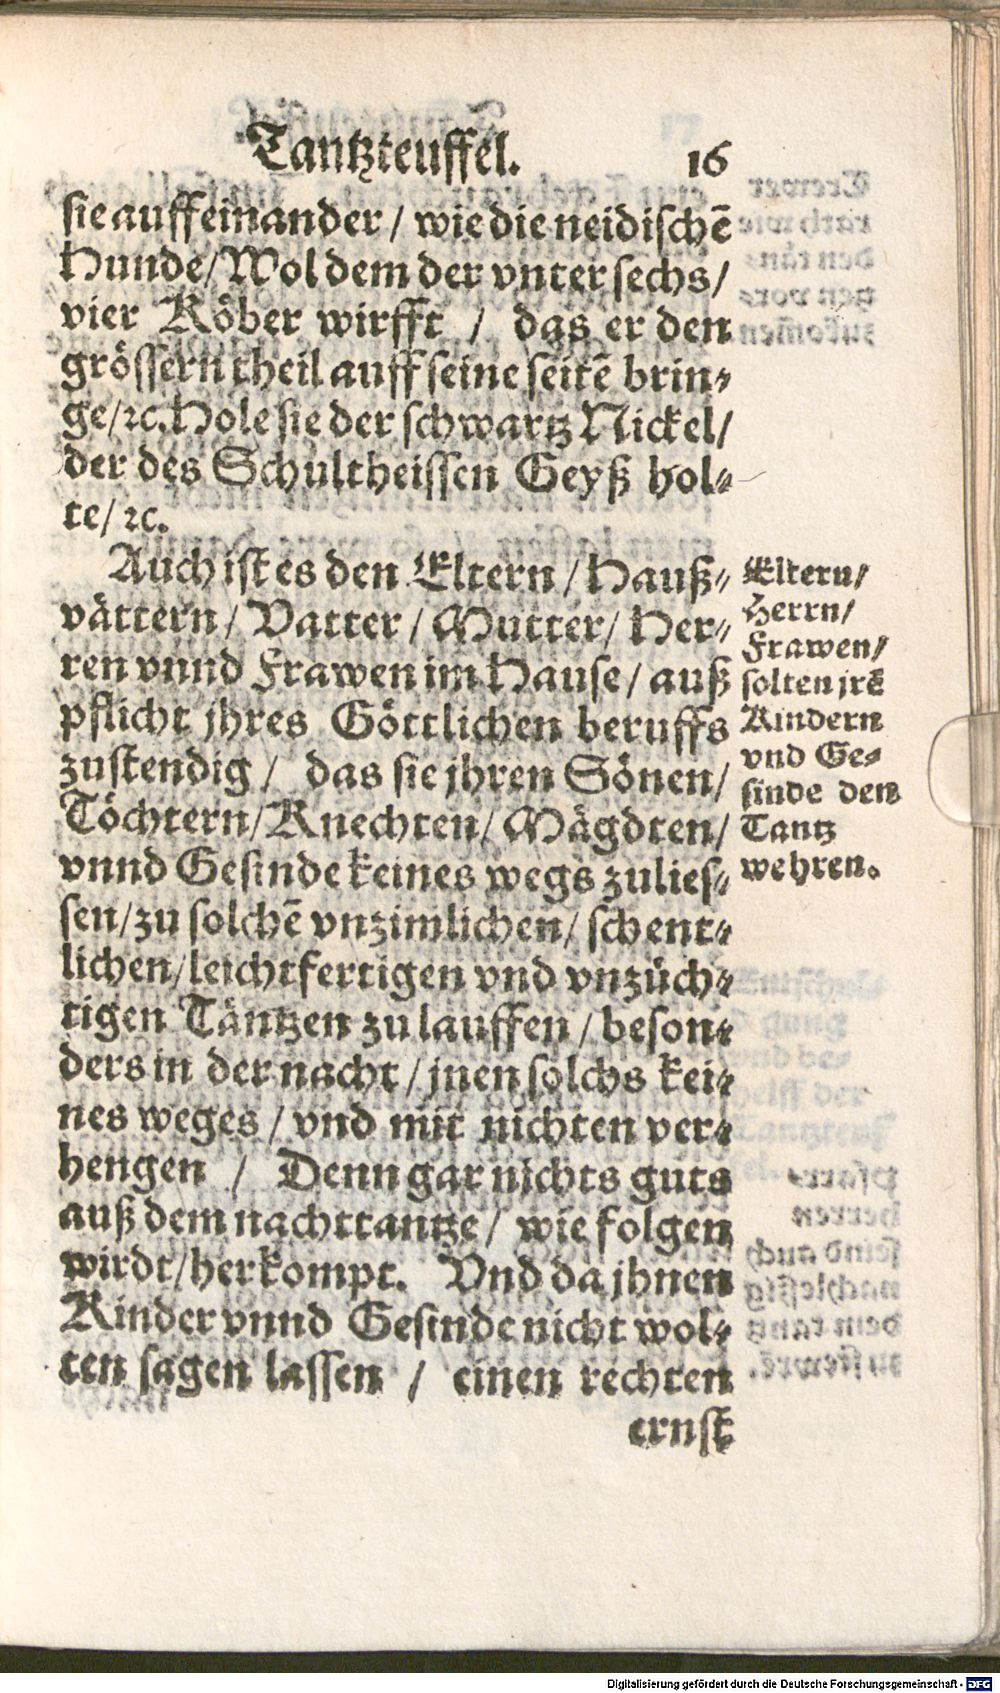 Tantzteuffel. 16
sie auffeinander / wie die neidischē
Hunde / Wol dem der vnter sechs /
vier Köber wirfft / das er den
grössern theil auff seine seitē brin⸗
ge / ꝛc. Hole sie der schwartz Nickel /
der des Schultheissen Geyß hol⸗
te / ꝛc.
Auch ist es den Eltern / Hauß⸗
vättern / Vatter / Mutter / Her⸗
ren vnnd Frawen im Hause / auß
pflicht jhres Göttlichen beruffs
zustendig / das sie jhren Sönen /
Töchtern / Knechten / Mägdten /
vnnd Gesinde keines wegs zulies⸗
sen / zu solchē vnzimlichen / schent⸗
lichen / leichtfertigen vnd vnzüch⸗
tigen Täntzen zu lauffen / beson⸗
ders in der nacht / jnen solchs kei⸗
nes weges / vnd mit nichten ver⸗
hengen / Denn gar nichts guts
auß dem nachttantze / wie folgen
wirdt / herkompt. Vnd da jhnen
Kinder vnnd Gesinde nicht wol⸗
ten sagen lassen / einen rechten
ernst
Eltern /
Herrn /
Frawen /
solten jrē
Kindern
vnd Ge⸗
sinde den
Tantz
wehren.
Digitalisierung gefördert durch die Deutsche Forschungsgemeinschaft - DFG